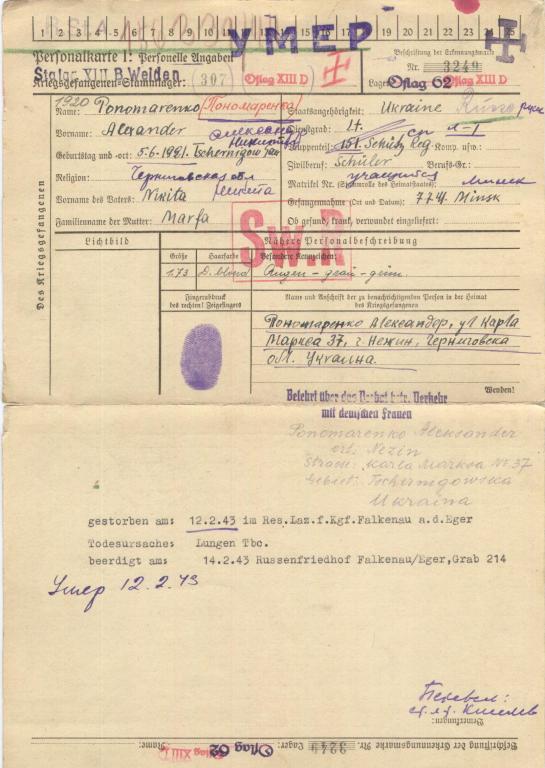 1 2 3 4 5 6 7 8 9 10 11 12 13 14 15 16 17 18 19 20 21 22 23 24 25
УМЕР
Personalkarte I: Personelle Angaben
Beschriftung der Erkennungsmarke
Stalag XIII B Weiden
Nr. 3249
Kriegsgefangenen-Stammlager: (397) Oflag XIII D
Lager: Oflag 62 Oflag XIII D
1920
Name: Ponomarenko Пономаренко
Staatsangehörigkeit: Ukraine
Vorname: Alexander
Dienstgrad: Lt.
Truppenteil: 151. Schütz Reg Komp. usw.:
Geburtstag und -ort: 5.6.1921. Tschernigow
Zivilberuf: Schüler Berufs-Gr.:
учащийся
Religion: Черниговская обл
Matrikel Nr. (Stammrolle des Heimatstaates): Минск
Vorname des Vaters: Nikita Никита
Gefangennahme (Ort und Datum): 7.7.41. Minsk
Familienname der Mutter: Marfa
Ob gesund, krank, verwundet eingeliefert:
Des Kriegsgefangenen
Lichtbild
Nähere Personalbeschreibung
Sw.R
Größe Haarfarbe Besondere Kennzeichen:
1.73 D. blond Augen - grau - grün.
Fingerabdruck
des rechten! Zeigefingers
Name und Anschrift der zu benachrichtigenden Person in der Heimat
des Kriegsgefangenen
Пономаренко Александер, ул Карла
Маркса 37, г. Нежин, Черниговска
обл. Украина.
Wenden!
Belehrt über das Verbot betr. Verkehr
mit deutschen Frauen
Ponomarenko Aleksander
ort: Nezin
Strasse: Karla Marksa Nr. 37
Gebiet: Tschernigowska
Ukraina
gestorben am: 12.2.43 im Res.Laz.f.Kgf.Falkenau a.d.Eger
Todesursache: Lungen Tbc.
beerdigt am: 14.2.43 Russenfriedhof Falkenau/Eger,Grab 214
Умер 12.2.43
Перевел:
Bemerkungen:
Beschriftung der Erkennungsmarke Nr. 3249 Lager: Oflag 62 Oflag XIII D
Name: